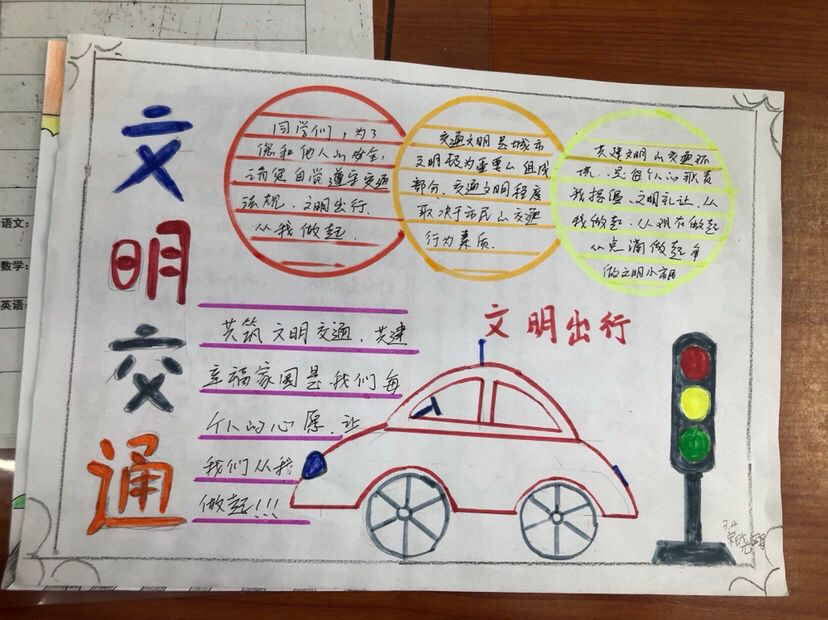 文
明
交
通
同学们,为了
您和他人的安全,
请您自觉遵守交通
法规、文明出行.
从我做起.
交通文明是城市
文明极为重要的组成
部分,交通文明程度
取决于市民的交通
行为素质.
共建文明的交通环
境,是每个人的
文明礼让、从
我做起、从现在做起
从点滴做起 争
做文明小市民
文明出行
共筑文明交通、共建
幸福家园是我们每
个人的心愿,让
我们从我
做起!!!
语文:
数学:
英语:
3.4